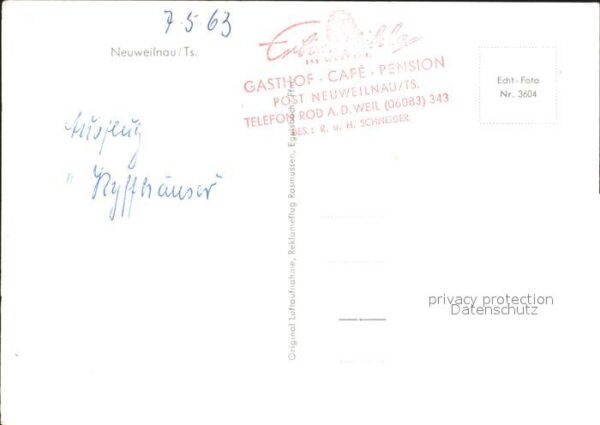 7·5·63
Neuweilnau/Ts.
IM WEILTAL
GASTHOF - CAFÉ - PENSION
POST NEUWEILNAU/TS.
TELEFON ROD A. D. WEIL (06083) 343
BES.: R. u. H. SCHNEIDER
Echt-Foto
Nr. 3604
Ausflug
"Kyffhäuser"
Original Luftaufnahme, Reklameflug Rasmussen, Egelsbach/Ffm.
privacy protection
Datenschutz